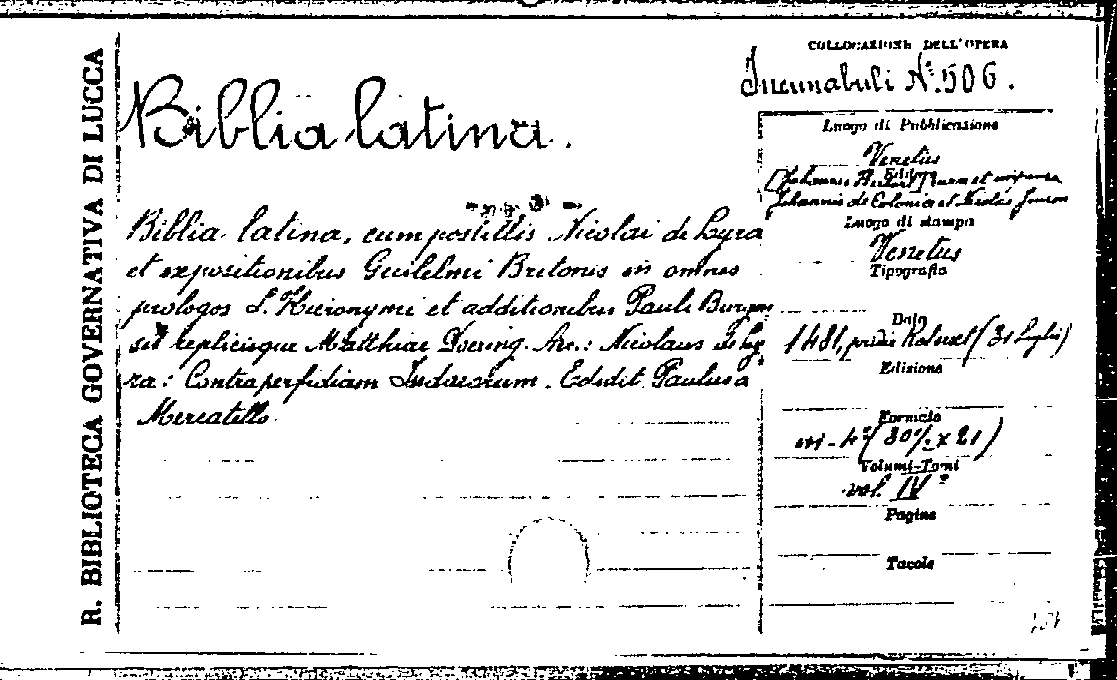 R. BIBLIOTECA GOVERNATIVA DI LUCCA
Biblia latina.
Biblia latina, cum postillis Nicolai de Lyra
et expositionibus Guilelmi Britonis in omnes
prologos S. Hieronymi et additionibus Pauli Burgen
sis replicisque Matthiae Doering. Acc.: Nicolaus de Ly
ra: Contra perfidiam Judaeorum. Edidit Paulus a
Mercatello.
COLLOCAZIONE DELL'OPERA
Incunabuli N.° 506.
Luogo di Pubblicazione
Venetiis
Editore
[Johannes et impensa
Johannis de Colonia et Nicolai Jenson
Luogo di stampa
Venetiis
Tipografia
Data
1481, pridie Kal. (31 Luglio)
Edizione
Formato
in-4° (30½ x 21)
Volumi-Tomi
vol. IV°
Pagine
Tavole